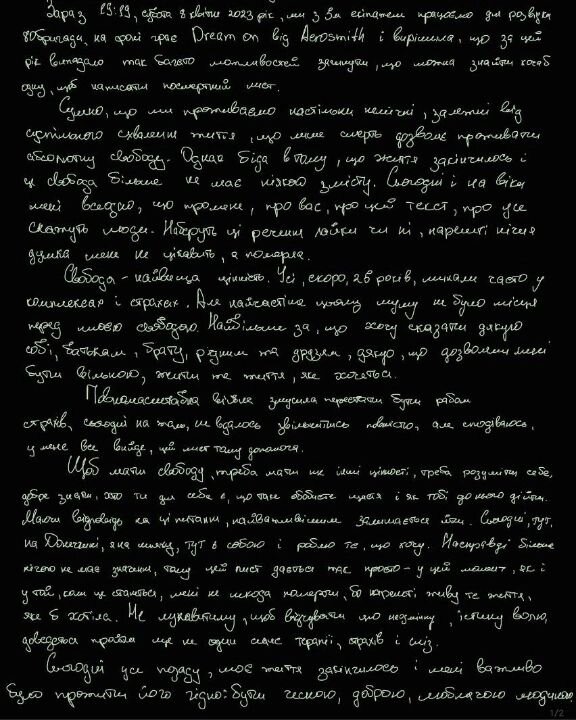 Зараз 19:19, субота 8 квітня 2023 рік, ми з 3м екіпажем працюємо для розвідки
80 бригади, на фоні грає Dream on від Aerosmith і вирішила, що за цей
рік випадало так багато можливостей загинути, що можна знайти хоча б
одну, щоб написати посмертний лист.
Сумно, що ми проживаємо настільки нелегкі, залежні від
суспільного схвалення життя, що лише смерть дозволяє проживати
абсолютну свободу. Однак біда в тому, що життя закінчилось і
ця свобода більше не має ніякого змісту. Сьогодні і на віки
мені всеодно, що про мене, про вас, про цей текст, про усе
скажуть люди. Наберуть ці речення лайки чи ні, нарешті нічия
думка мене не цікавить, я померла.
Свобода - найвища цінність. Усі, скоро, 25 років, минали часто у
комплексах і страхах. Але найчастіше цьому шуму не було місця
перед моєю свободою. Найбільше за, що хочу сказати дякую
собі, батькам, брату, рідним та друзям, дякую, що дозволяли мені
бути вільною, жити те життя, яке хочеться.
Повномасштабна війна змусила перестати бути рабом
страхів, сьогодні на жаль, не вдалось звільнитись повністю, але сподіваюсь,
у мене все вийде, цей лист тому допомога.
Щоб мати свободу, треба мати ще інші цінності, треба розуміти себе,
добре знати, хто ти для себе є, що таке особисте щастя і як тобі до нього дійти.
Маючи відповідь на ці питання, найважливішим залишається йти. Сьогодні тут,
на Донеччині, я на шляху, тут з собою і роблю те, що хочу. Насправді більше
нічого не має значення, тому цей лист дається так просто - у цей момент, як і
у той, коли це станеться, мені не шкода померти, бо нарешті живу те життя,
яке б хотіла. Не лукавитиму, щоб відчувати цю незмінну, істинну волю,
доведеться пройти ще не один сеанс терапії, страхів і сліз.
Сьогодні усе позаду, моє життя закінчилось і мені важливо
було прожити його гідно: бути чесною, доброю, люблячою людиною.
1/2